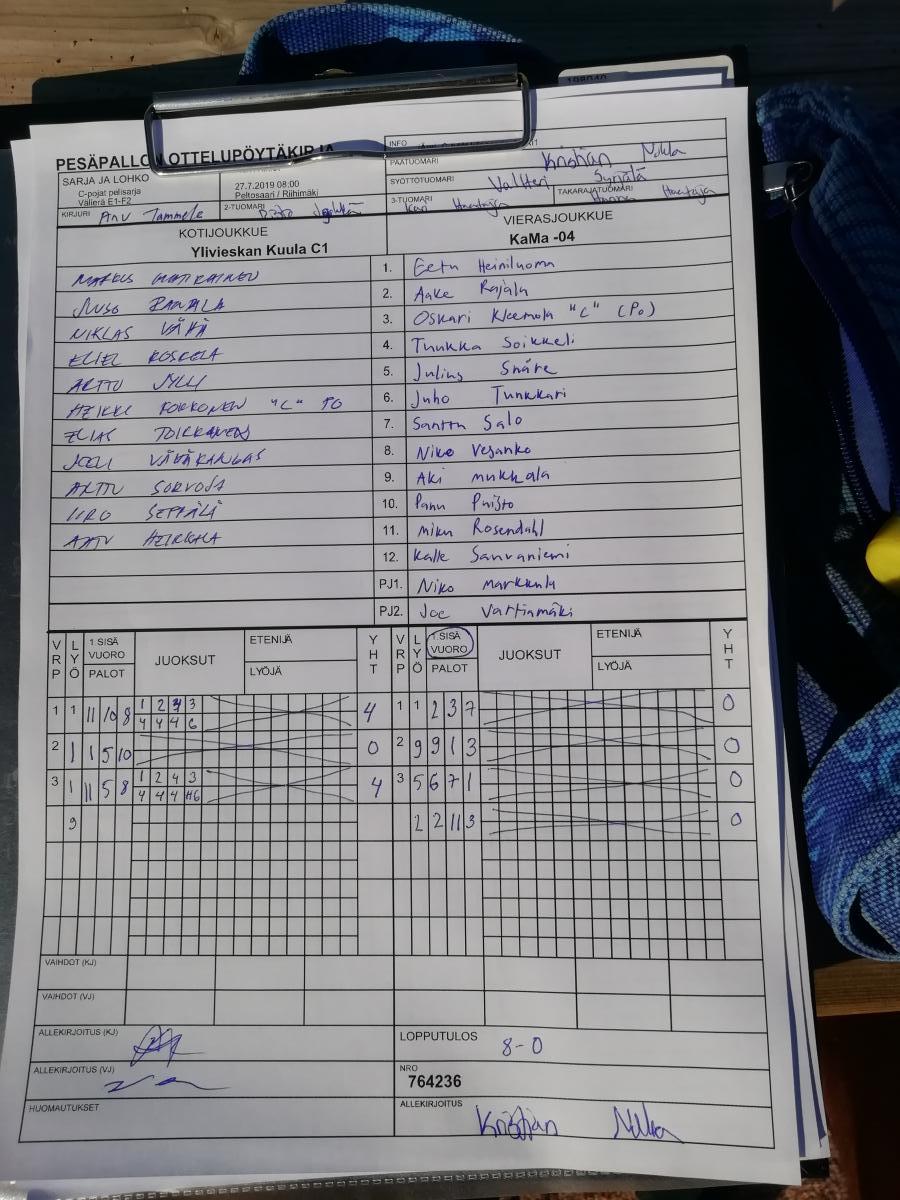 PESÄPALLON OTTELUPÖYTÄKIRJA
INFO
PÄÄTUOMARI Kristian Nokla
SARJA JA LOHKO
C-pojat pelisarja
Välierä E1-F2
27.7.2019 08:00
Peltosaari / Riihimäki
SYÖTTÖTUOMARI Valtteri Syrjälä
KIRJURI Anu Tammela
2-TUOMARI
3-TUOMARI Kari
TAKARAJATUOMARI
KOTIJOUKKUE
Ylivieskan Kuula C1
VIERASJOUKKUE
KaMa -04
MARKUS 1. Eetu Heiniluoma
JUSO RANTALA 2. Aake Rajala
NIKLAS VÄHÄ 3. Oskari Kleemola "C" (Po)
ELIEL KOSKELA 4. Tuukka Soikkeli
ARTTU JYLLI 5. Julius Snåre
HEIKKI KOKKONEN "C" PO 6. Juho Tunkkari
ELIAS TOIKKANEN 7. Santtu Salo
JOELI VÄHÄKANGAS 8. Niko Vesanko
ARTTU SORVOJA 9. Aki Mukkala
IIRO SEPPÄLÄ 10. Panu Puisto
AATU HEIKKILA 11. Miku Rosendahl
12. Kalle Sanvaniemi
PJ1. Niko Markkula
PJ2. Joe Vartiamäki
VRP LYÖ 1.SISÄ VUORO PALOT JUOKSUT ETENIJÄ LYÖJÄ YHT VRP LYÖ 1.SISÄ VUORO PALOT JUOKSUT ETENIJÄ LYÖJÄ YHT
1 1 11 10 8 1 2 3 4 1 1 2 3 7 0
4 4 4 6
2 1 1 5 10 0 2 9 9 1 3 0
3 1 11 5 8 1 2 4 3 4 3 5 6 7 1 0
4 4 4 6
9 2 2 11 3 0
VAIHDOT (KJ)
VAIHDOT (VJ)
ALLEKIRJOITUS (KJ)
LOPPUTULOS 8-0
ALLEKIRJOITUS (VJ)
NRO
764236
HUOMAUTUKSET
ALLEKIRJOITUS Kristian Nokla